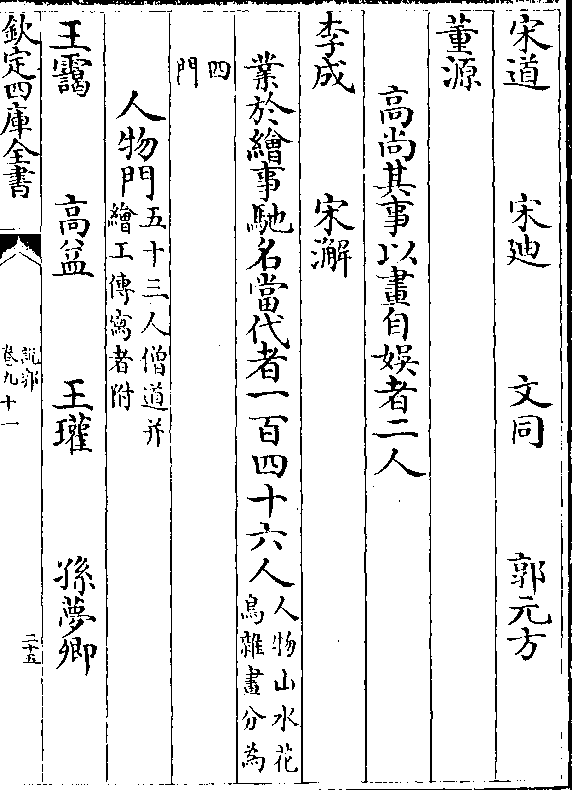 宋道　宋迪　文同　郭元方
董源
高尚其事以畫自娛者二人
李成　宋澥
業於繪事馳名當代者一百四十六人人物山水花
鳥雜畫分為
四
門
人物門五十三人僧道并
繪工傳寫者附
王靄　高益　王瓘　孫夢卿
欽定四庫全書
說郛
卷九十一
二十五